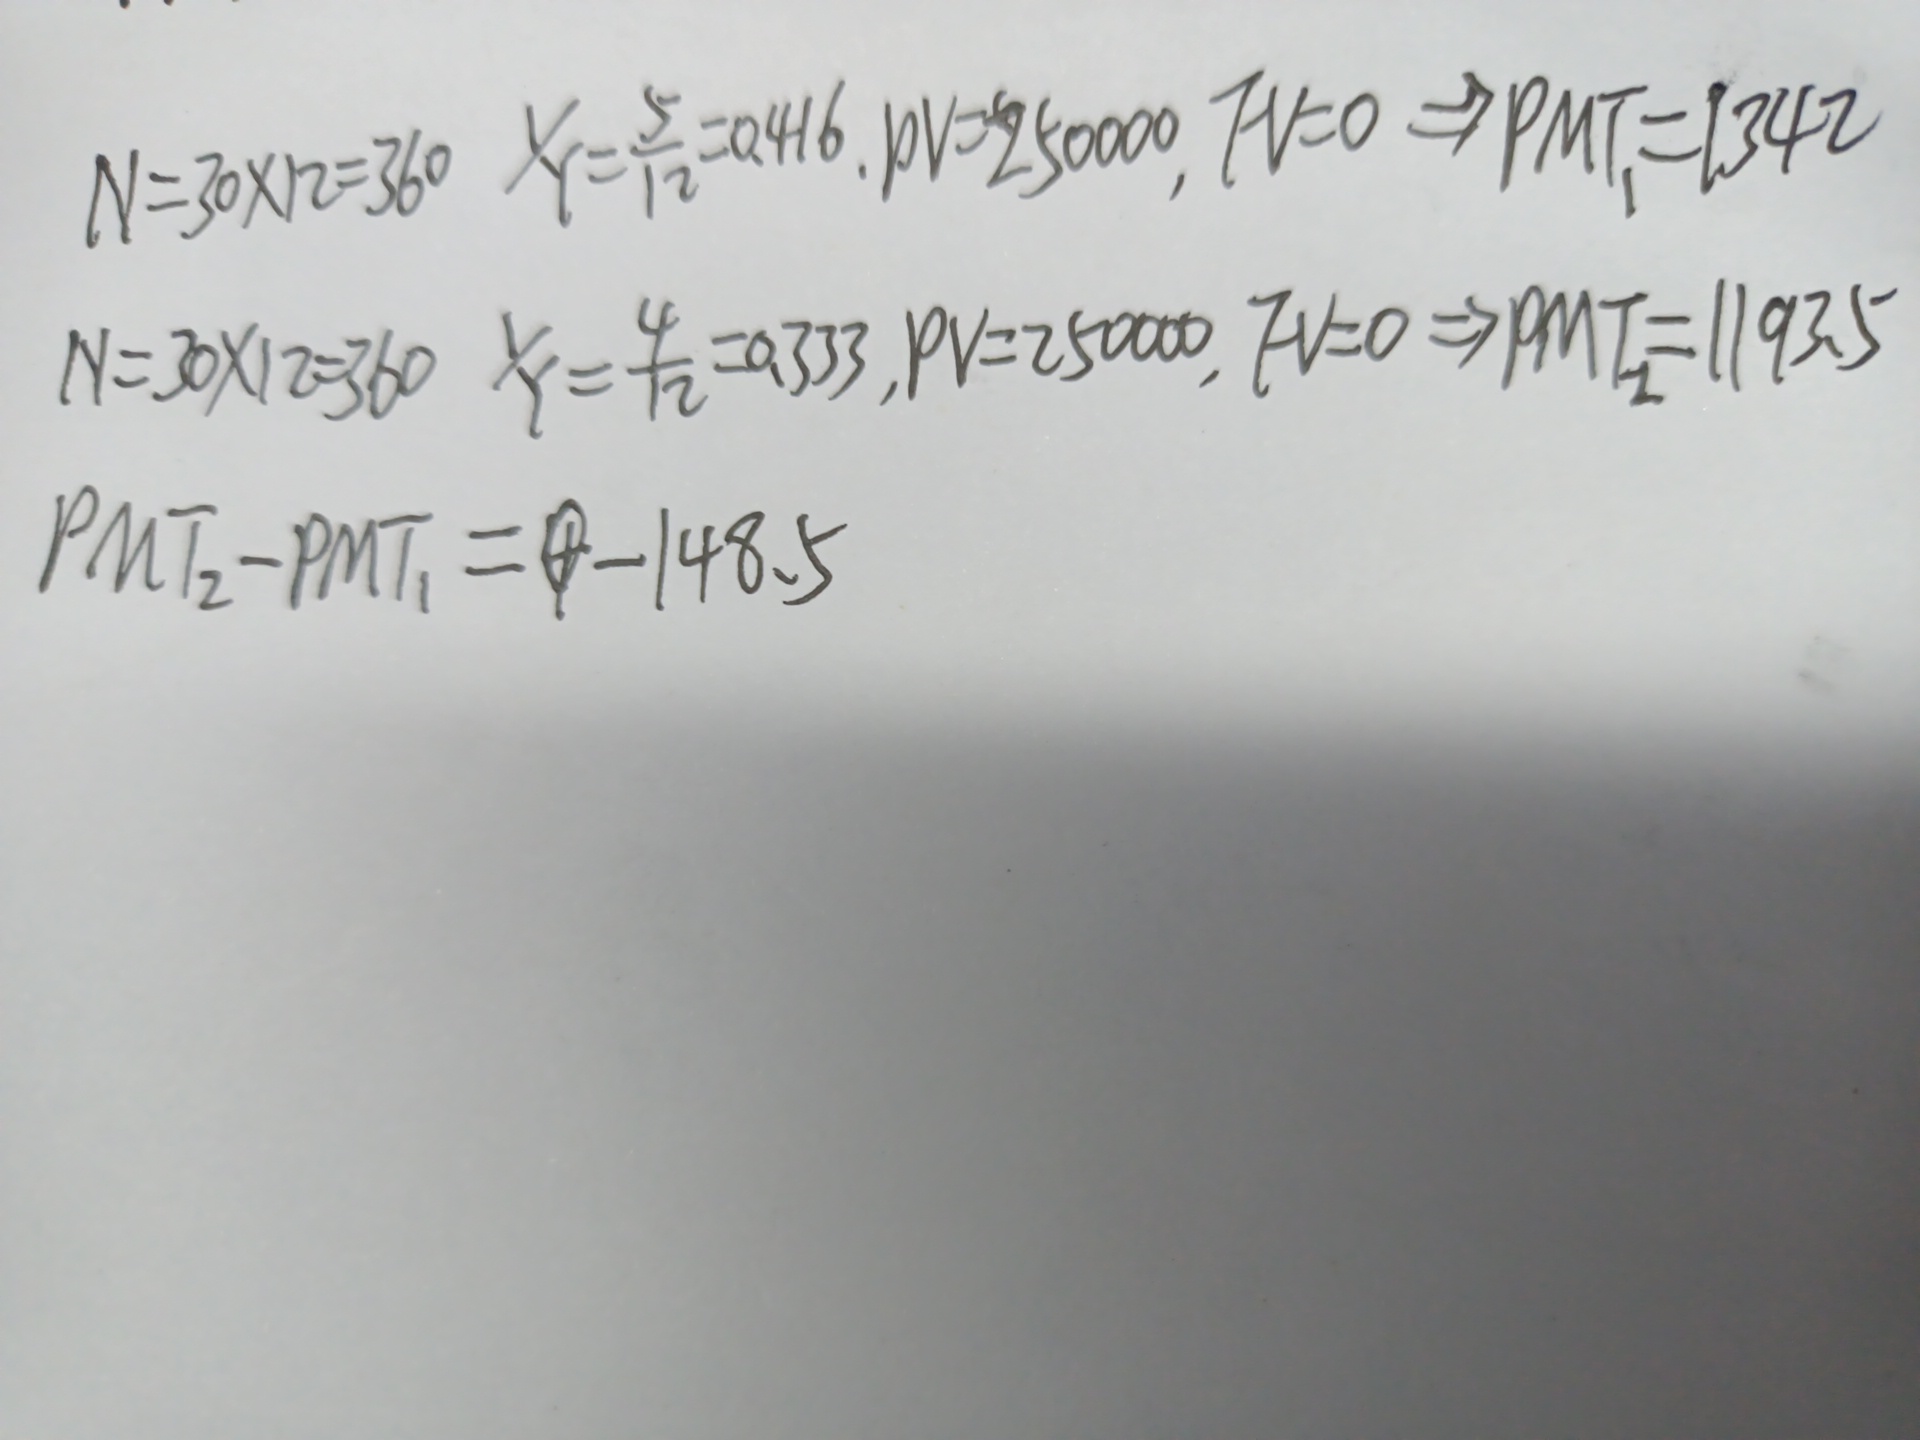 N=30×12=360 I/Y=5/12=0.416, PV=250000, FV=0 ⇒ PMT₁=1342
N=30×12=360 I/Y=4/12=0.333, PV=250000, FV=0 ⇒ PMT₂=1193.5
PMT₂-PMT₁=-148.5